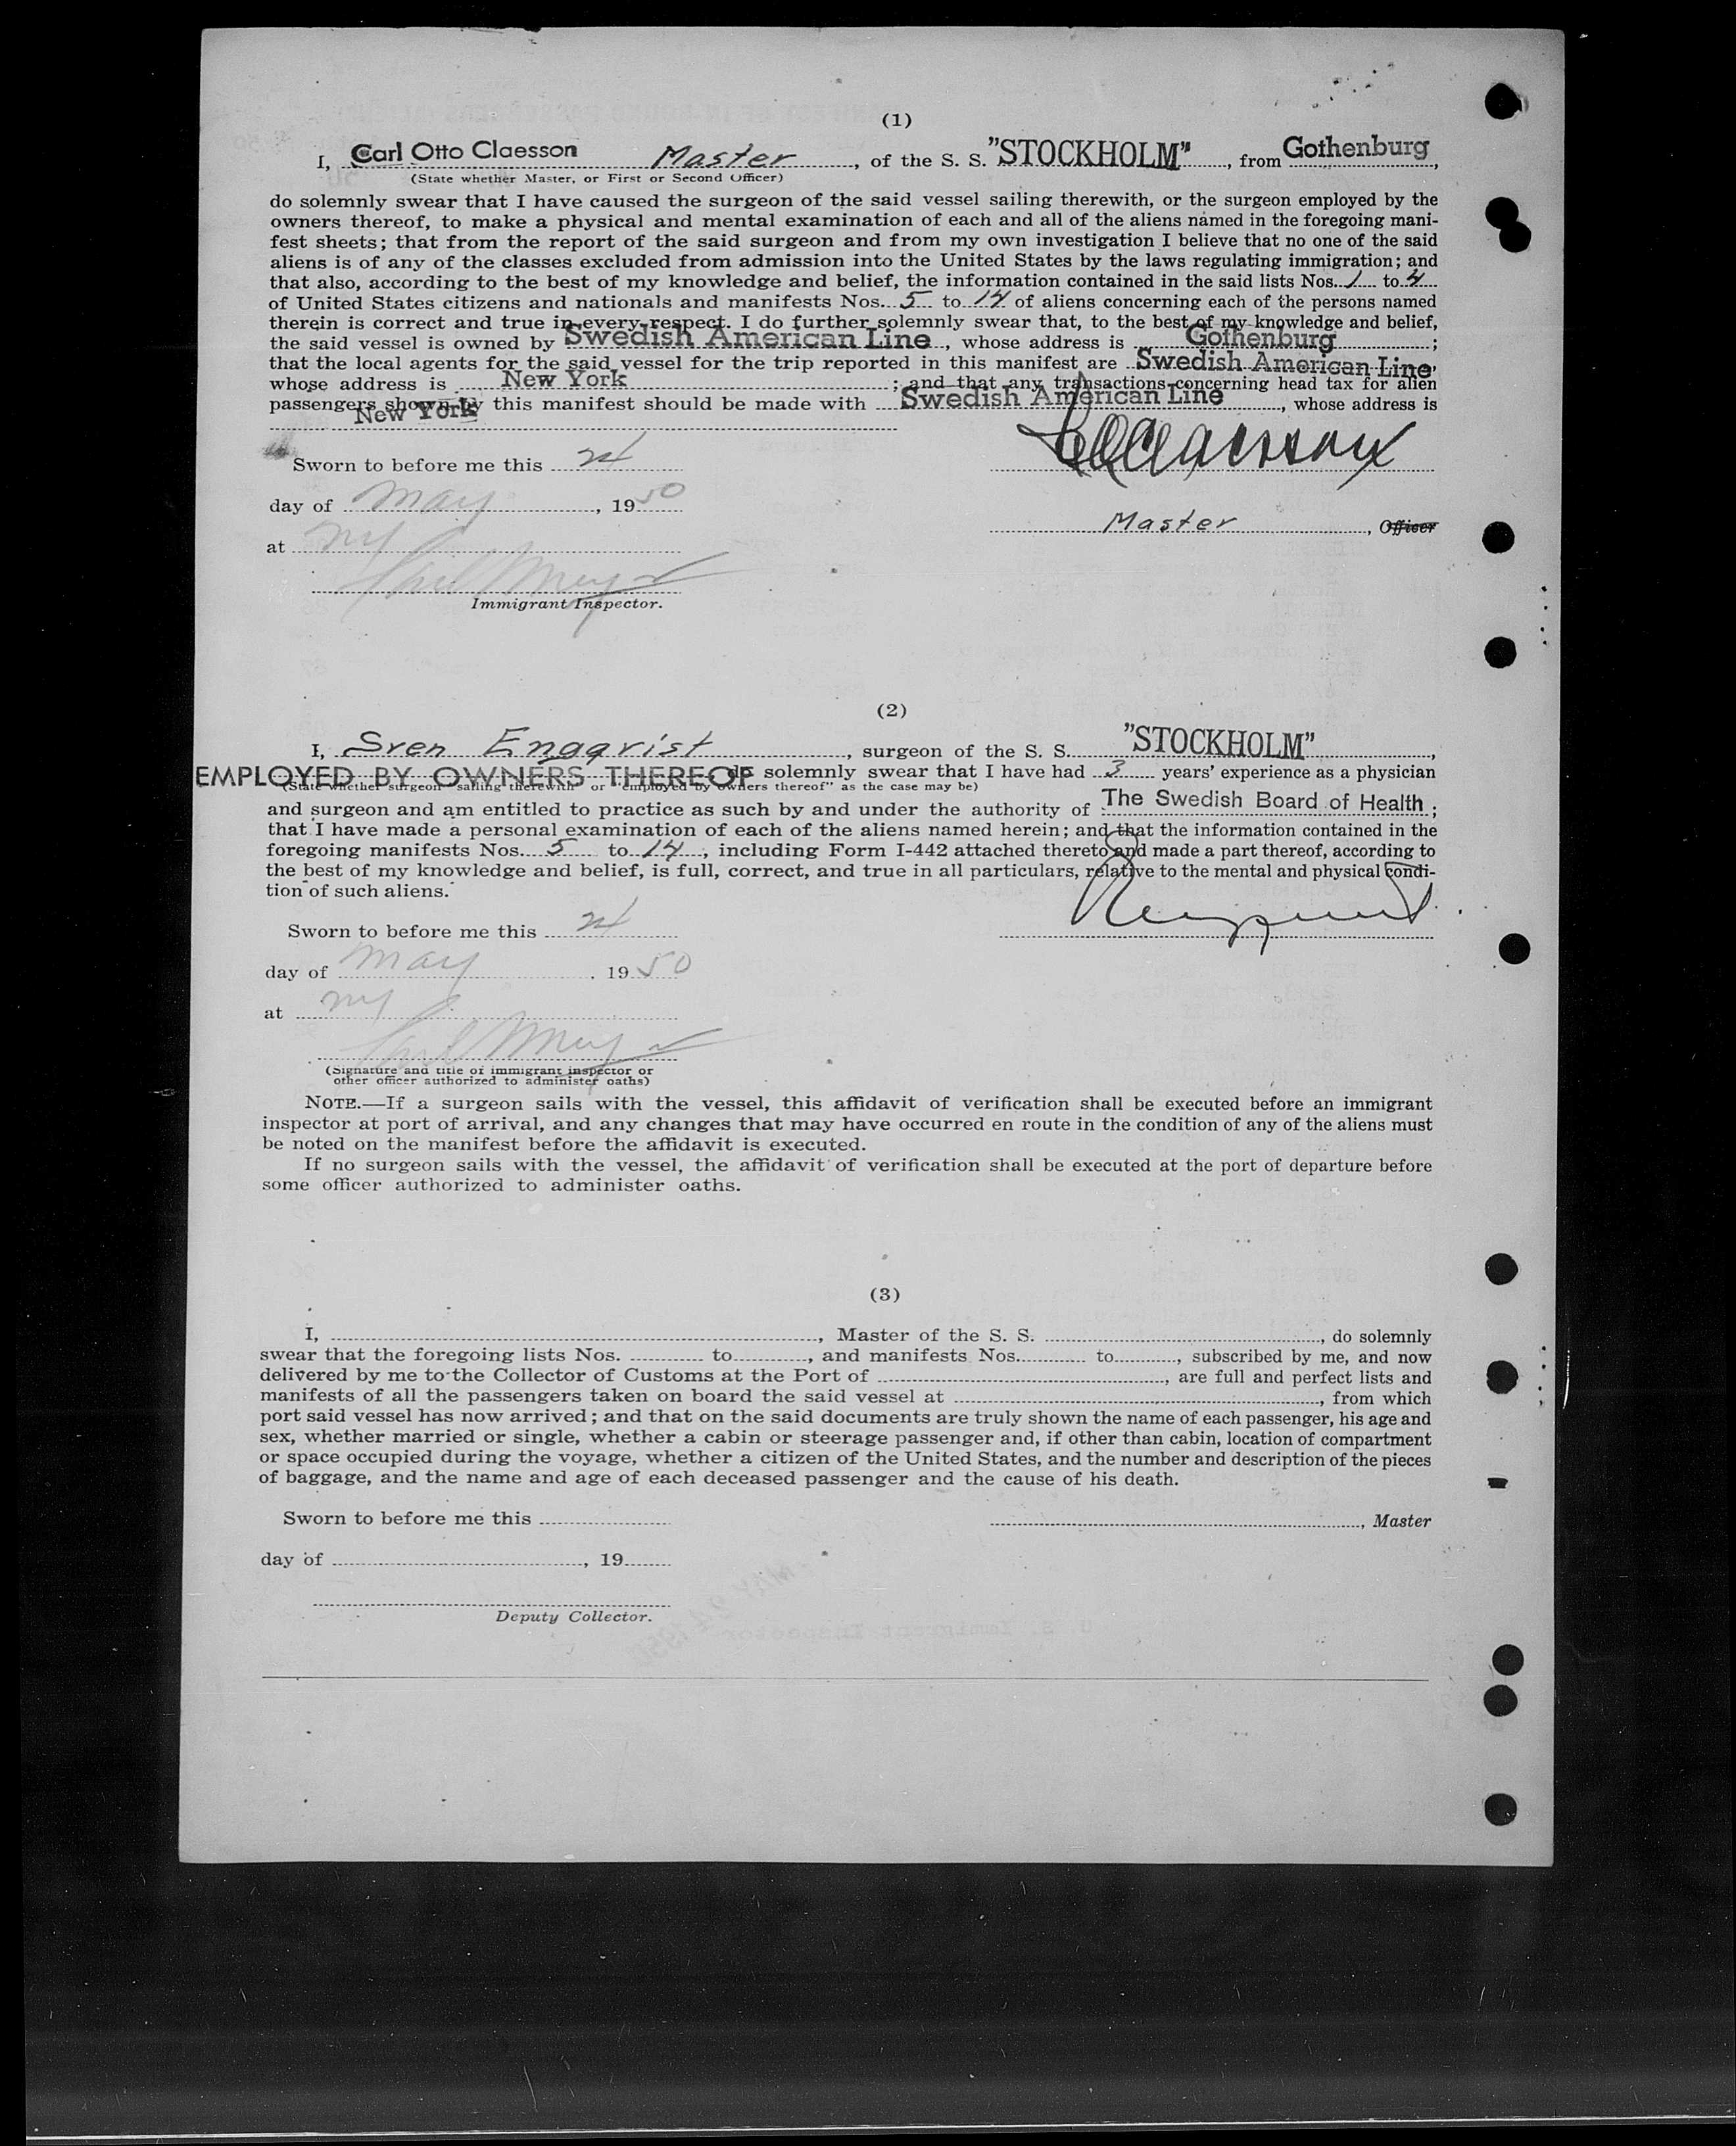 (1)
I, Carl Otto Claesson Master, of the S. S. "STOCKHOLM", from Gothenburg,
(State whether Master, or First or Second Officer)
do solemnly swear that I have caused the surgeon of the said vessel sailing therewith, or the surgeon employed by the
owners thereof, to make a physical and mental examination of each and all of the aliens named in the foregoing mani-
fest sheets; that from the report of the said surgeon and from my own investigation I believe that no one of the said
aliens is of any of the classes excluded from admission into the United States by the laws regulating immigration; and
that also, according to the best of my knowledge and belief, the information contained in the said lists Nos. 1 to 4
of United States citizens and nationals and manifests Nos. 5 to 14 of aliens concerning each of the persons named
therein is correct and true in every respect. I do further solemnly swear that, to the best of my knowledge and belief,
the said vessel is owned by Swedish American Line, whose address is Gothenburg;
that the local agents for the said vessel for the trip reported in this manifest are Swedish American Line,
whose address is New York; and that any transactions concerning head tax for alien
passengers shown by this manifest should be made with Swedish American Line, whose address is
New York
Sworn to before me this
day of May, 1950
Master, Officer
at NY
Immigrant Inspector.
(2)
I, Sven Engqvist, surgeon of the S. S. "STOCKHOLM",
EMPLOYED BY OWNERS THEREOF do solemnly swear that I have had 3 years' experience as a physician
(State whether surgeon "sailing therewith" or "employed by owners thereof" as the case may be)
and surgeon and am entitled to practice as such by and under the authority of The Swedish Board of Health;
that I have made a personal examination of each of the aliens named herein; and that the information contained in the
foregoing manifests Nos. 5 to 14, including Form I-442 attached thereto and made a part thereof, according to
the best of my knowledge and belief, is full, correct, and true in all particulars, relative to the mental and physical condi-
tion of such aliens.
Sworn to before me this
day of May, 1950
at NY
(Signature and title of immigrant inspector or
other officer authorized to administer oaths)
NOTE.—If a surgeon sails with the vessel, this affidavit of verification shall be executed before an immigrant
inspector at port of arrival, and any changes that may have occurred en route in the condition of any of the aliens must
be noted on the manifest before the affidavit is executed.
If no surgeon sails with the vessel, the affidavit of verification shall be executed at the port of departure before
some officer authorized to administer oaths.
(3)
I, , Master of the S. S. , do solemnly
swear that the foregoing lists Nos. to , and manifests Nos. to , subscribed by me, and now
delivered by me to the Collector of Customs at the Port of , are full and perfect lists and
manifests of all the passengers taken on board the said vessel at , from which
port said vessel has now arrived; and that on the said documents are truly shown the name of each passenger, his age and
sex, whether married or single, whether a cabin or steerage passenger and, if other than cabin, location of compartment
or space occupied during the voyage, whether a citizen of the United States, and the number and description of the pieces
of baggage, and the name and age of each deceased passenger and the cause of his death.
Sworn to before me this
, Master
day of , 19
Deputy Collector.